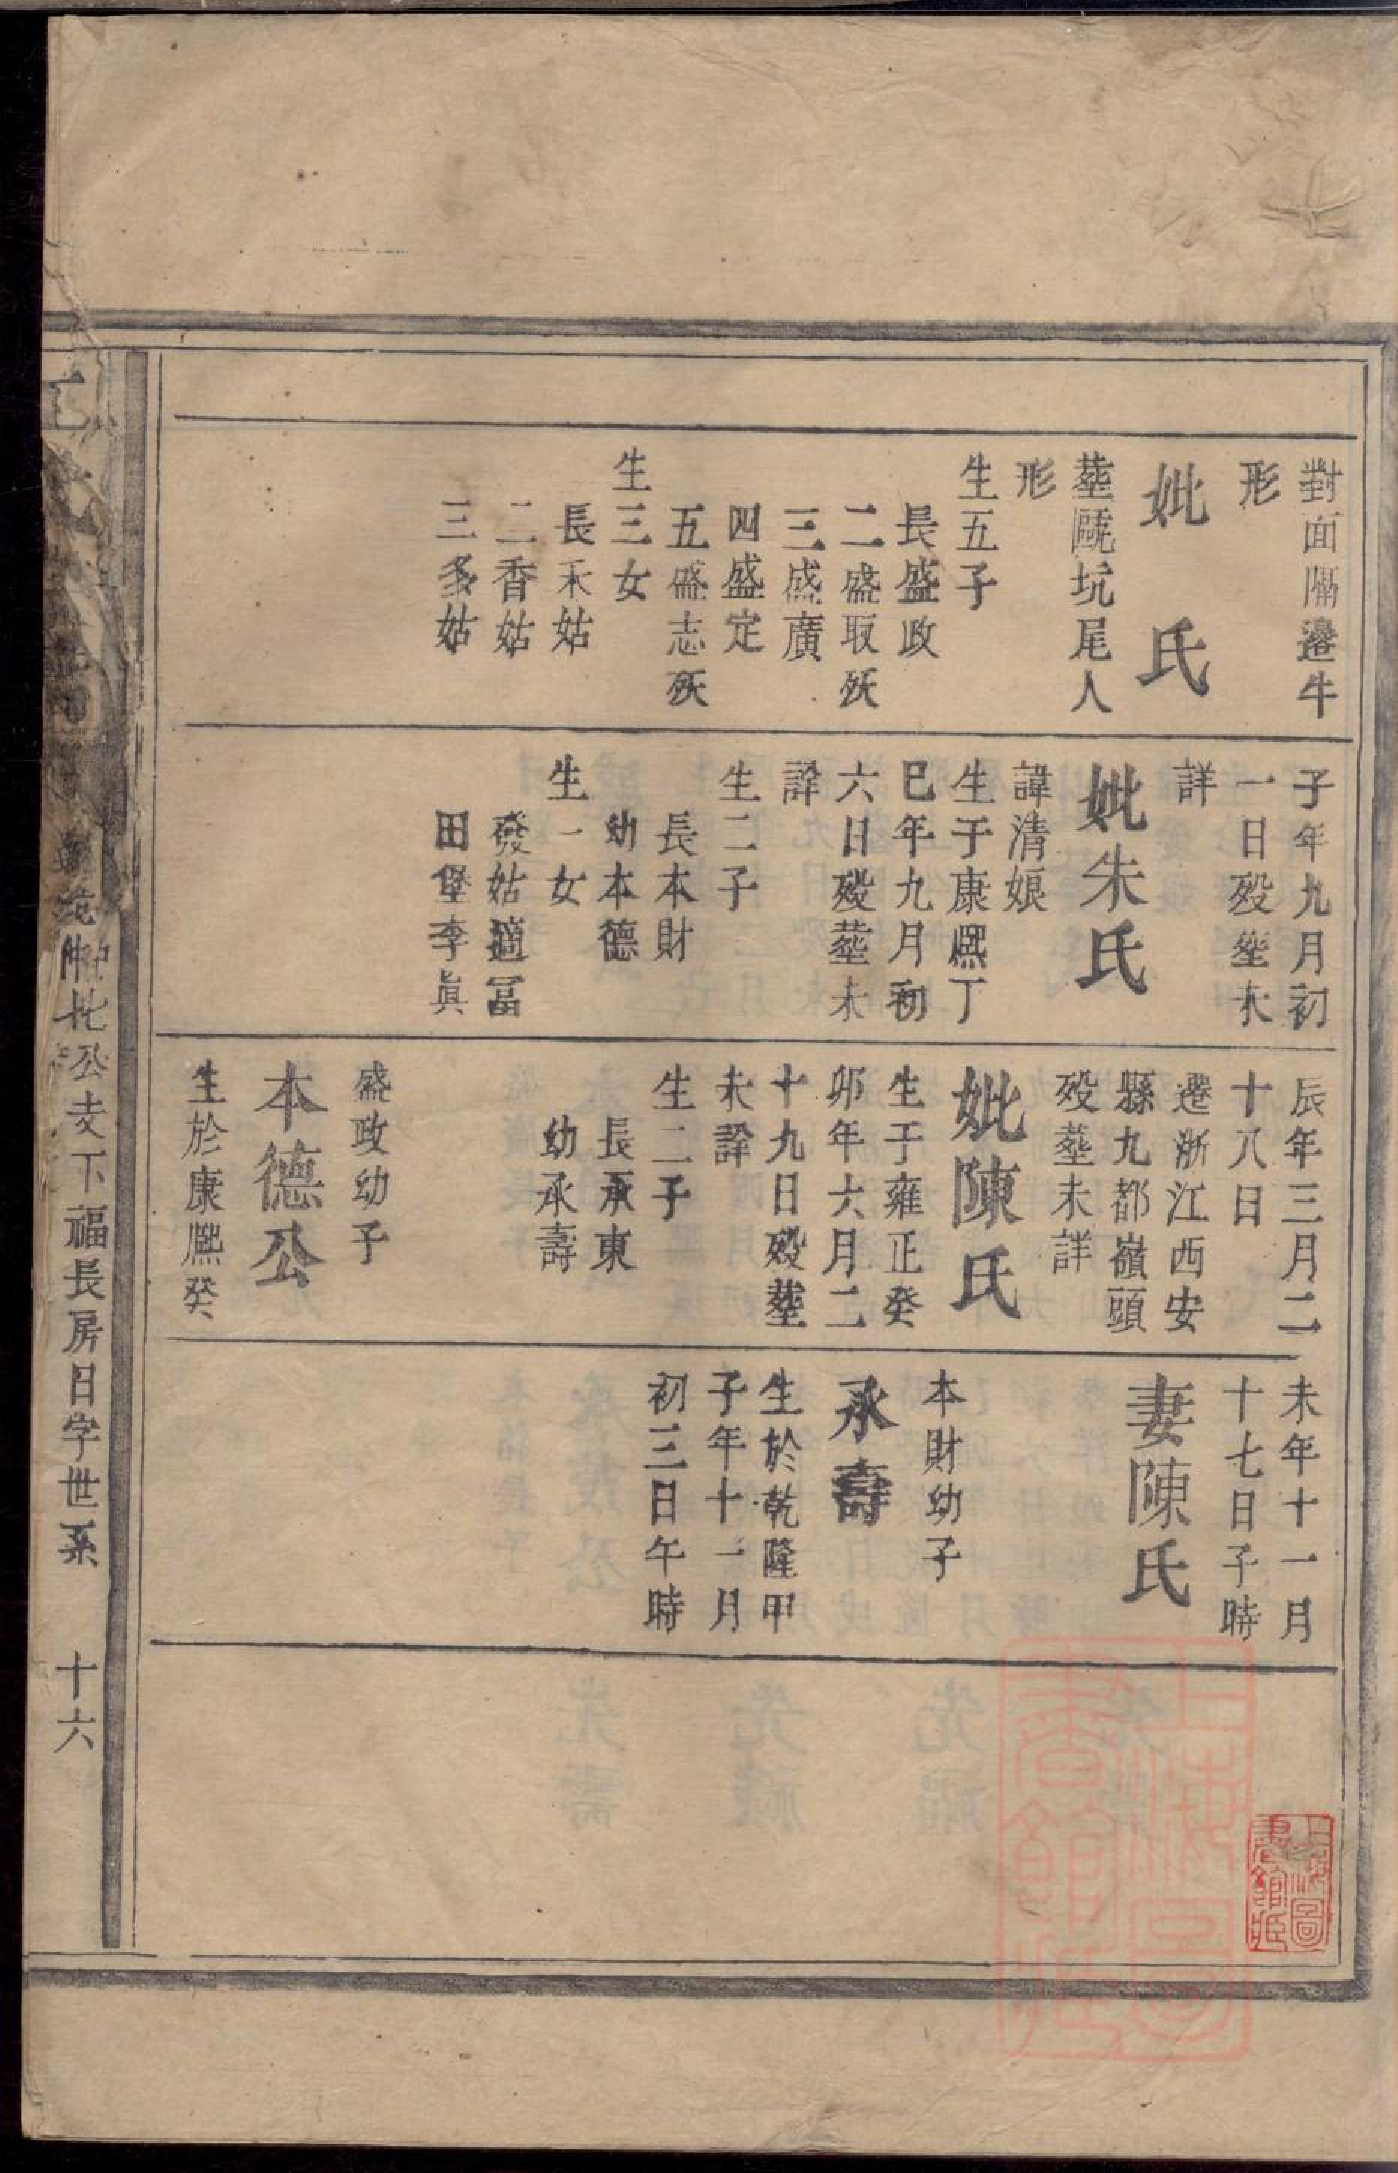 對面隔邉牛
形
妣氏
塟甌坑尾人
形
生五子
長盛政
二盛取殀
三盛廣
四盛定
五盛志殀
生三女
長禾姑
二香姑
三多姑
子年九月初
一日歿塟未
詳
妣朱氏
諱清娘
生于康熈丁
巳年九月初
六日歿塟未
詳
生二子
長本財
幼本德
生一女
發姑適冨
田垕李眞
辰年三月二
十八日
遷浙江西安
縣九都嶺頭
歿塟未詳
妣陳氏
生于雍正癸
卯年六月二
十九日歿塟
未詳
生二子
長承東
幼承壽
盛政幼子
本德公
生於康熈癸
未年十一月
十七日子時
妻陳氏
本財幼子
承壽
生於乾隆甲
子年十一月
初三日午時
公支下福長房日字世系
十六
上海圖書館藏